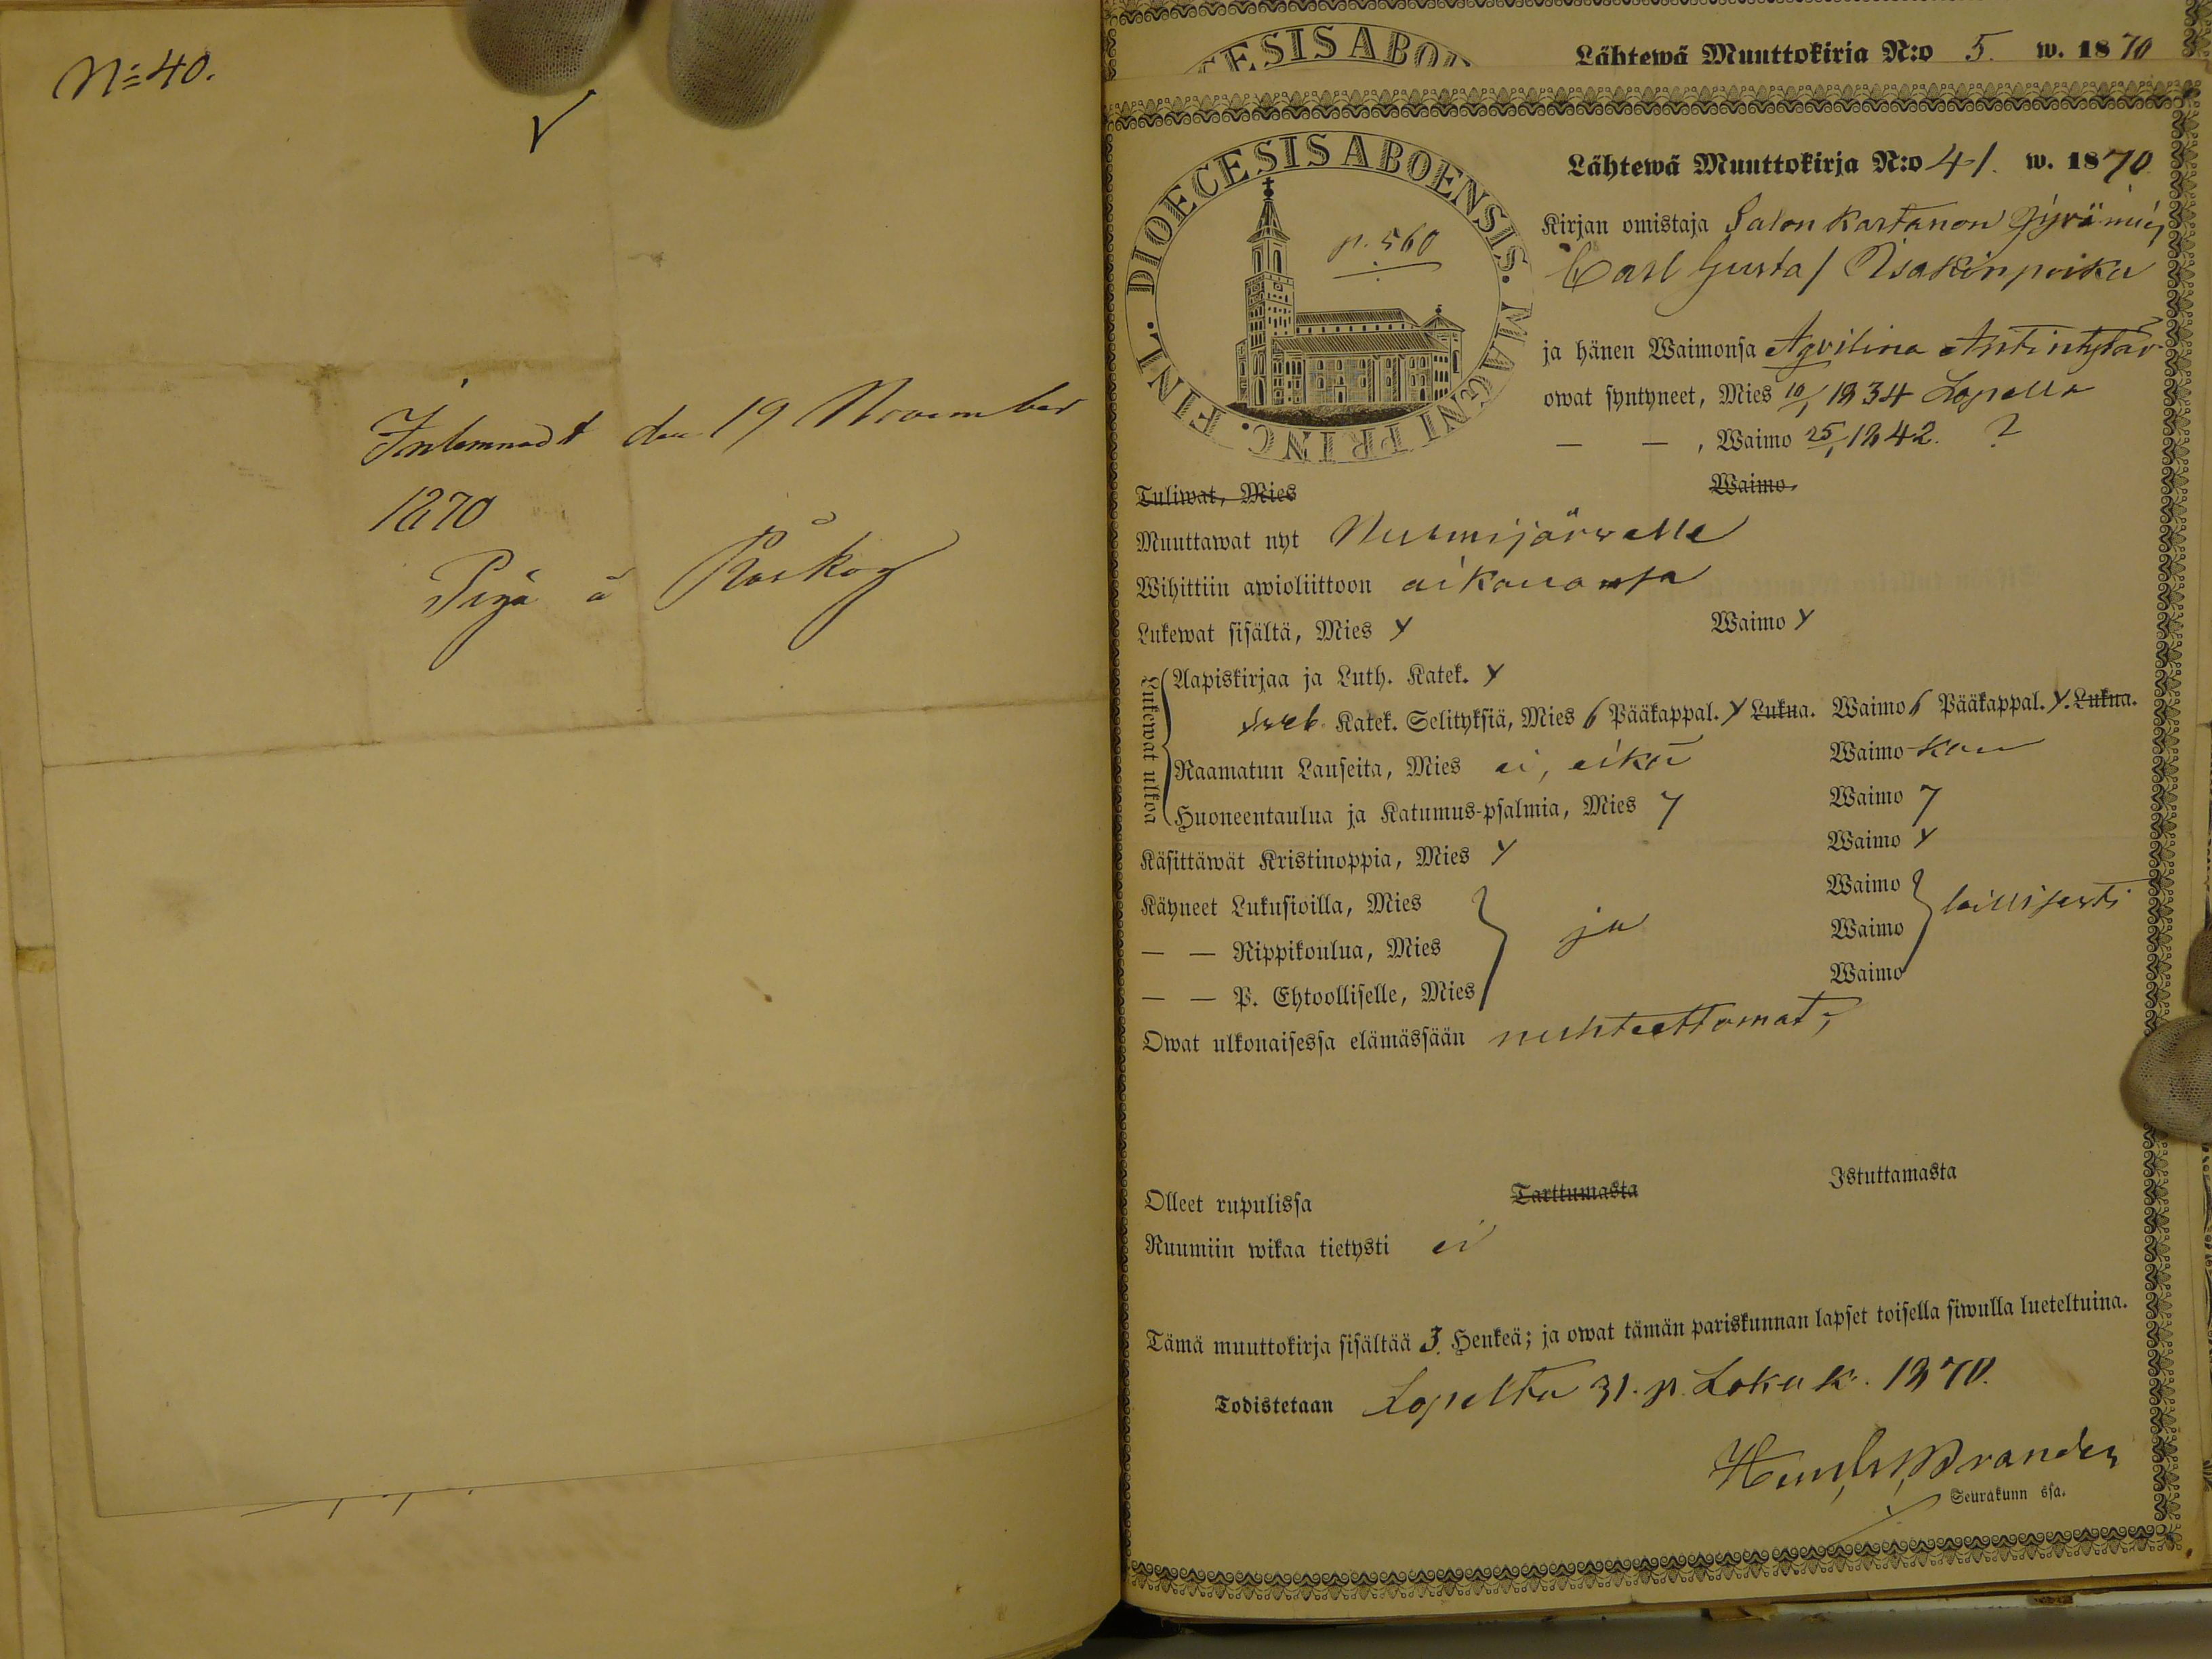 N:o 40.
Inlemnadt den 19 November
1870
Piga å Råskog
DIOECESIS ABOENSIS
Lähtewä Muuttokirja N:o 5. w. 1870
FINL. DIOECESIS ABOENSIS. MAGNI PRINC.
p. 560
Lähtewä Muuttokirja N:o 41. w. 1870
Kirjan omistaja Salon Kartanon
Carl Gustaf Isakinpoika
ja hänen Waimonsa Agvilina Antintytär
owat syntyneet, Mies 10/1 1834 Lopella
— — , Waimo 25/1 1842. ?
Tuliwat, Mies Waimo,
Muuttawat nyt Nurmijärwelle
Wihittiin awioliittoon aikanansa
Lukewat sisältä, Mies y Waimo y
Lukewat ulkoa
Aapiskirjaa ja Luth. Katek. y
Sweb. Katek. Selityksiä, Mies 6 Pääkappal. y Lukua. Waimo 6 Pääkappal. y. Lukua.
Raamatun Lauseita, Mies ei, eikä Waimo kan
Huoneentaulua ja Katumus-psalmia, Mies 7 Waimo 7
Käsittäwät Kristinoppia, Mies y Waimo y
Käyneet Lukusioilla, Mies Waimo
— — Rippikoulua, Mies ja Waimo laillisesti
— — P. Ehtoolliselle, Mies Waimo
Owat ulkonaisessa elämässään nuhteettomat;
Olleet rupulissa Tarttumasta Istuttamasta
Ruumiin wikaa tietysti ei
Tämä muuttokirja sisältää 3. Henkeä; ja owat tämän pariskunnan lapset toisella siwulla lueteltuina.
Todistetaan Lopelta 31. p. Lokak. 1870.
Brander
Seurakunn ssa.